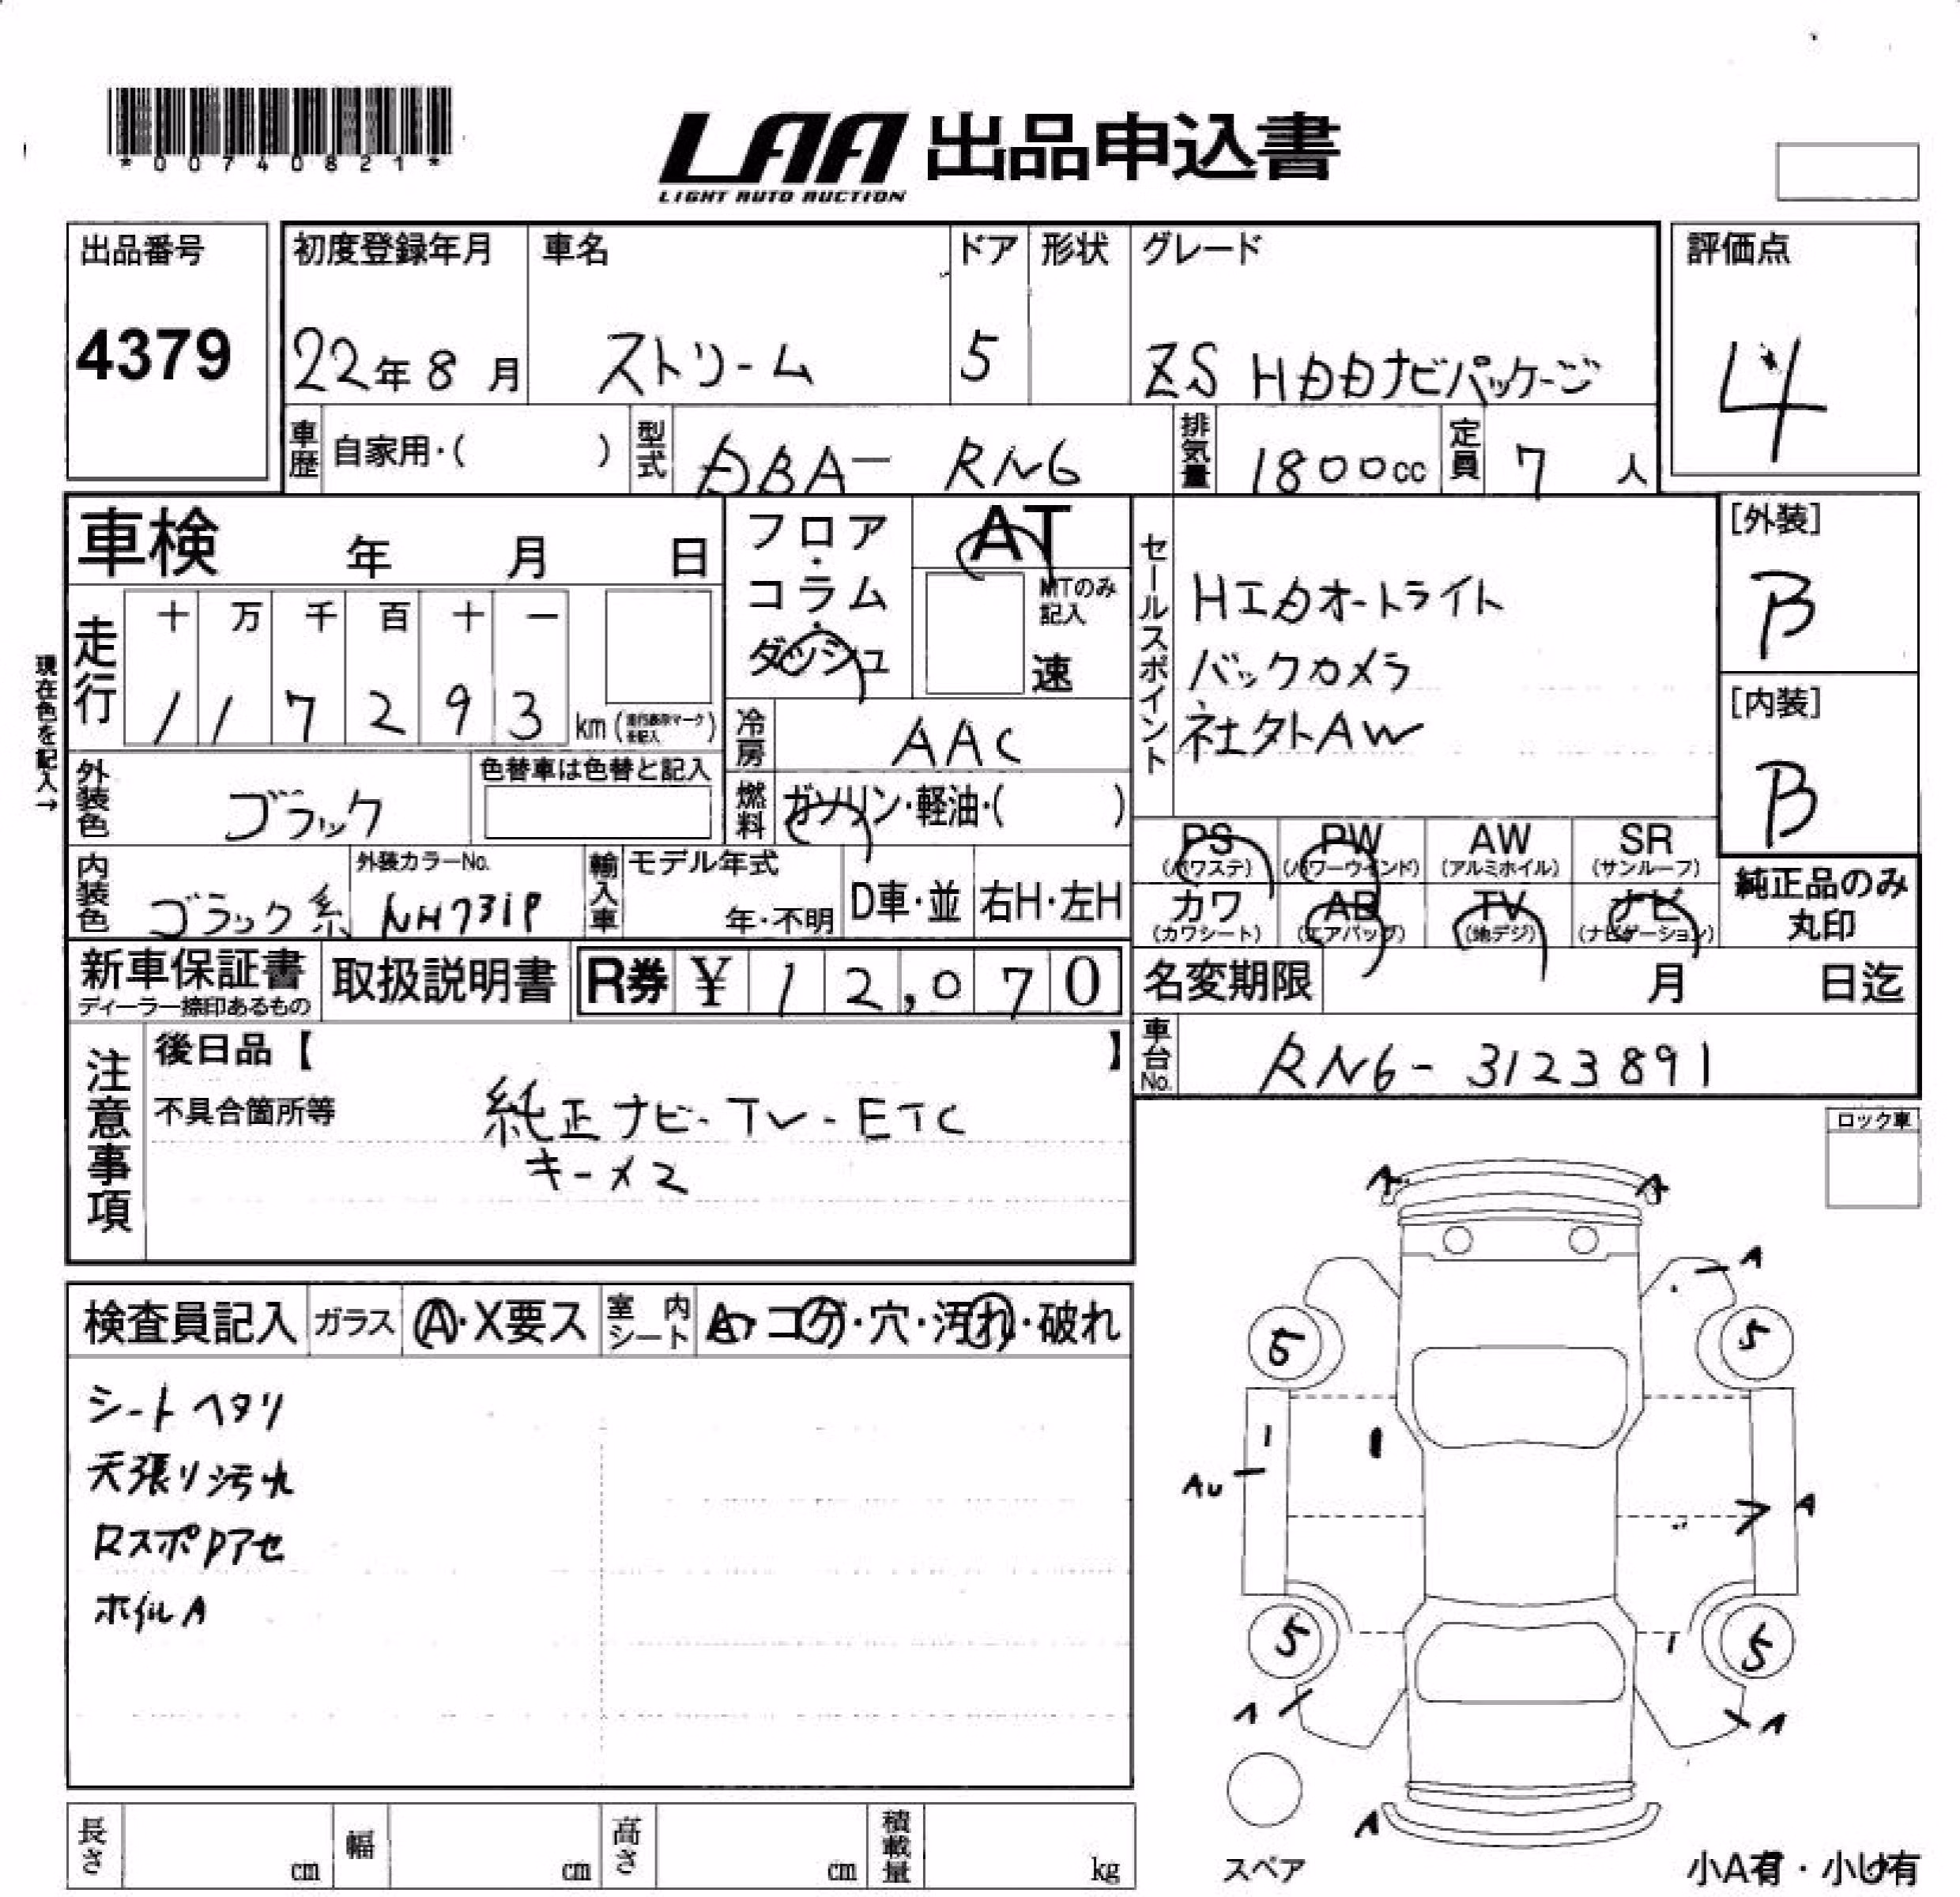 *00740821*
LAA 出品申込書
LIGHT AUTO AUCTION
出品番号
4379
初度登録年月
22年8月
車名
ストリーム
ドア
5
形状
グレード
ZS HDDナビパッケージ
評価点
4
車歴 自家用・( )
型式 DBA- RN6
排気量 1800cc
定員 7人
車検 年 月 日
フロア・コラム・ダッシュ
AT
MTのみ記入
速
セールスポイント
HIDオートライト
バックカメラ
社外AW
[外装]
B
[内装]
B
現在色を記入→
走行
十 万 千 百 十 一
1 1 7 2 9 3 km
冷房 AAC
外装色 ブラック
色替車は色替と記入
燃料 ガソリン・軽油・( )
内装色 ブラック系
外装カラーNo.
NH731P
輸入車 モデル年式
年・不明
D車・並
右H・左H
PS (パワステ)
PW (パワーウインド)
AW (アルミホイル)
SR (サンルーフ)
カワ (カワシート)
AB (エアバッグ)
TV (地デジ)
ナビ (ナビゲーション)
純正品のみ丸印
新車保証書
ディーラー捺印あるもの
取扱説明書
R券 ¥ 12,070
名変期限 月 日迄
車台No. RN6-3123891
注意事項
後日品【 】
不具合箇所等
純正ナビ-TV-ETC
キーメ2
ロック車
検査員記入
ガラス
A・X要ス
室内シート
A・コゲ・穴・汚れ・破れ
シートヘタリ
天張り汚れ
RスポDアセ
ホイルA
A
A
A
5
5
AU
A
5
5
A
A
A
スペア
長さ cm
幅 cm
高さ cm
積載量 kg
小A有・小U有